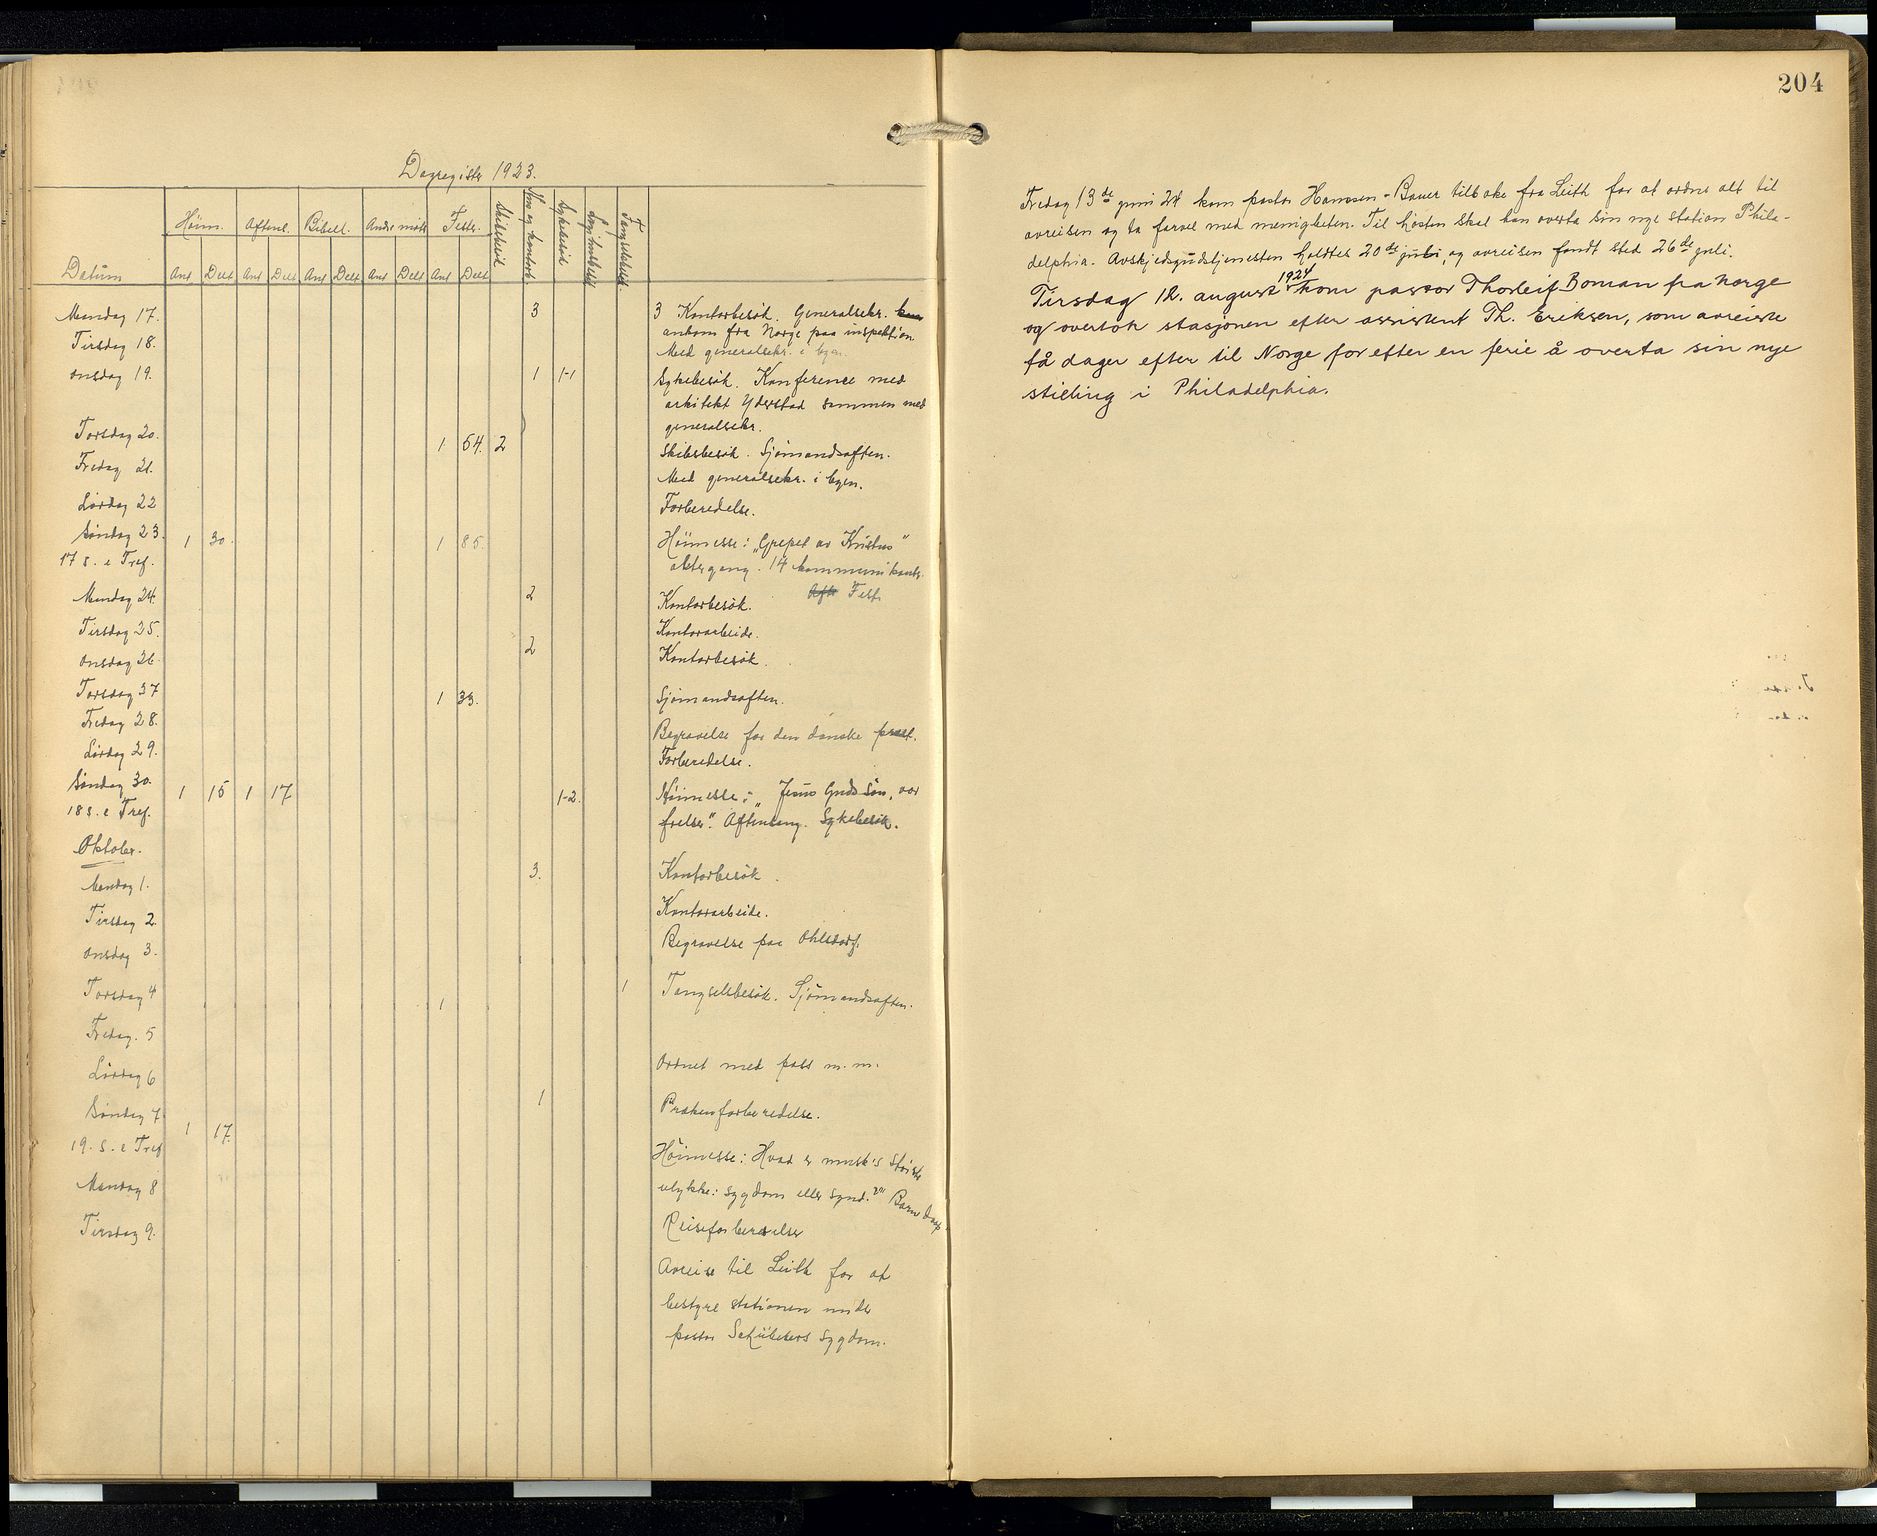 Dagregister 1923.
Datum Høim. Aftenl. Bibell. Andre møt. Fester. Skibsbesøk Hus og kontorb. Sykebesøk Fængselsbesøk
Ant Delt Ant Delt Ant Delt Ant Delt Ant Delt
Mandag 17. 3 3 Kontorbesøk. Generalsekr. kom
ankom fra Norge paa inspektion
Tirsdag 18. Med generalsekr. i byen.
Onsdag 19. 1 1-1 Sykebesøk. Konference med
arkitekt Yderstad sammen med
generalsekr.
Torsdag 20. 1 54. 2 Skibsbesøk. Sjømandsaften.
Fredag 21. Med generalsekr. i byen.
Lørdag 22 Forberedelse.
Søndag 23. 1 30. 1 85. Høimesse: „Grepet av Kristus"
17 s. e Tref. altergang. 14 kommunikanter.
Aft Fest.
Mandag 24. 2 Kontorbesøk.
Tirsdag 25. Kontorarbeide.
Onsdag 26. 2 Kontorbesøk.
Torsdag 37 1 33. Sjømandsaften.
Fredag 28. Begravelse for den danske prest.
Lørdag 29. Forberedelse.
Søndag 30. 1 15 1 17 1-2. Høimesse: „Jesus Guds Søn, vor
18 s. e Tref. frelser". Aftensang. Sykebesøk.
Oktober.
Mandag 1. 3. Kontorbesøk.
Tirsdag 2. Kontorarbeide.
Onsdag 3. Begravelse paa Ohlsdorf.
Torsdag 4 1 1 Fængselsbesøk. Sjømandsaften.
Fredag. 5
Lørdag 6 Ordnet med pass m. m.
1 Prækenforberedelse.
Søndag 7. 1 17.
19. s. e Tref Høimesse: Hvad er mnsk's største
ulykke: sygdom eller synd?" Barnedaap
Mandag 8 Reiseforberedelser
Tirsdag 9. Avreise til Leith for at
bestyre stationen under
pastor Schübelers sygdom.
204
Fredag 13de juni 24 kom pastor Hansen-Bauer tilbake fra Leith for at ordne alt til
avreisen og ta farvel med menigheten. Til høsten skal han overta sin nye station Phila-
delphia. Avskjedsgudstjenesten holdtes 20de juli, og avreisen fandt sted 26de juli.
Tirsdag 12. august 1924 kom pastor Thorleif Boman fra Norge
og overtok stasjonen efter assistent Th. Eriksen, som avreiste
få dager efter til Norge for efter en ferie å overta sin nye
stilling i Philadelphia.